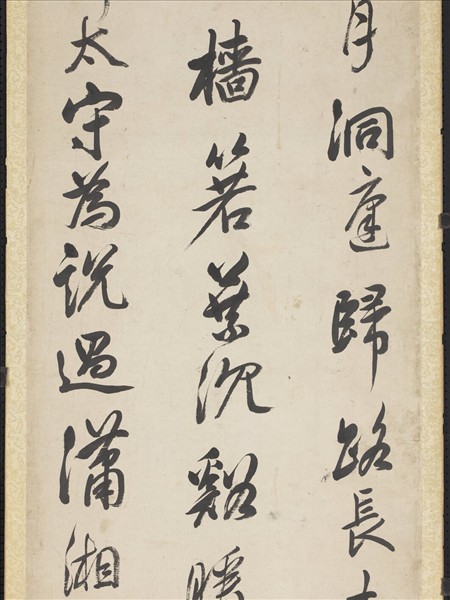 月洞庭歸路長
檣箬葉沉谿暖
太守為說過瀟湘